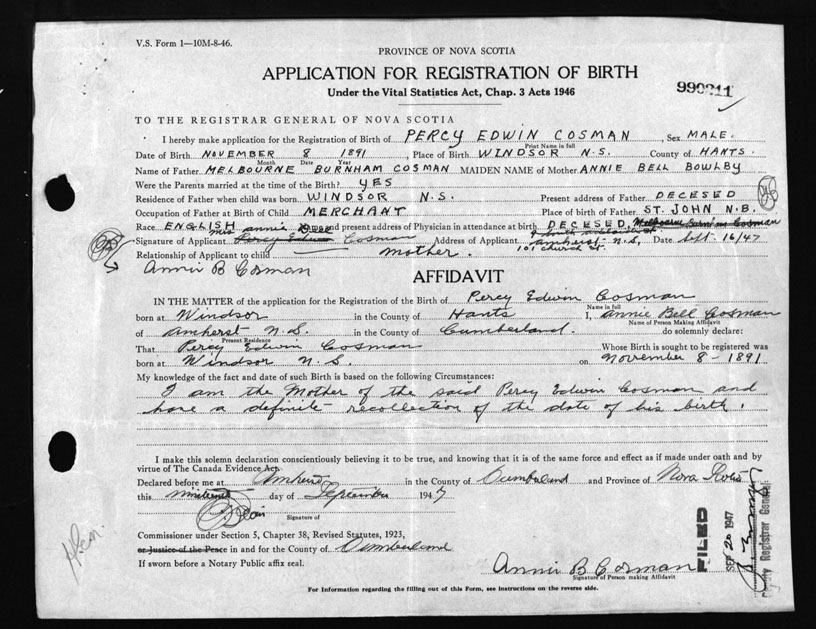 V.S. Form 1—10M-8-46.
PROVINCE OF NOVA SCOTIA
APPLICATION FOR REGISTRATION OF BIRTH
Under the Vital Statistics Act, Chap. 3 Acts 1946
990211
TO THE REGISTRAR GENERAL OF NOVA SCOTIA
I hereby make application for the Registration of Birth of PERCY EDWIN COSMAN Sex MALE.
Print Name in full
Date of Birth NOVEMBER 8 1891, Place of Birth WINDSOR N.S. County of HANTS.
Month Date Year
Name of Father MELBOURNE BURNHAM COSMAN MAIDEN NAME of Mother ANNIE BELL BOWLBY
Were the Parents married at the time of the Birth? YES
Residence of Father when child was born WINDSOR N.S. Present address of Father DECESED
Occupation of Father at Birth of Child MERCHANT Place of birth of Father ST. JOHN N.B.
Race ENGLISH and present address of Physician in attendance at birth DECESED
Signature of Applicant Percy Edwin Cosman Address of Applicant Amherst N.S, Date Sept. 16/47
101 Church St.
Relationship of Applicant to child mother.
Annie B Cosman
AFFIDAVIT
IN THE MATTER of the application for the Registration of the Birth of Percy Edwin Cosman
Name in full
born at Windsor in the County of Hants I, Annie Bell Cosman
Name of Person Making Affidavit
of Amherst N.S. in the County of Cumberland. do solemnly declare:
Present Residence
That Percy Edwin Cosman Whose Birth is sought to be registered was
born at Windsor N.S. on November 8 - 1891
My knowledge of the fact and date of such Birth is based on the following Circumstances:
I am the Mother of the said Percy Edwin Cosman and
have a definite recollection of the date of his birth.
I make this solemn declaration conscientiously believing it to be true, and knowing that it is of the same force and effect as if made under oath and by
virtue of The Canada Evidence Act.
Declared before me at Amherst in the County of Cumberland and Province of Nova Scotia
this day of September 1947
Signature of
Commissioner under Section 5, Chapter 38, Revised Statutes, 1923,
or Justice of the Peace in and for the County of Cumberland
If sworn before a Notary Public affix seal.
Annie B Cosman
Signature of Person making Affidavit
FILED
SEP 20 1947
Deputy Registrar General
For Information regarding the filling out of this Form, see instructions on the reverse side.